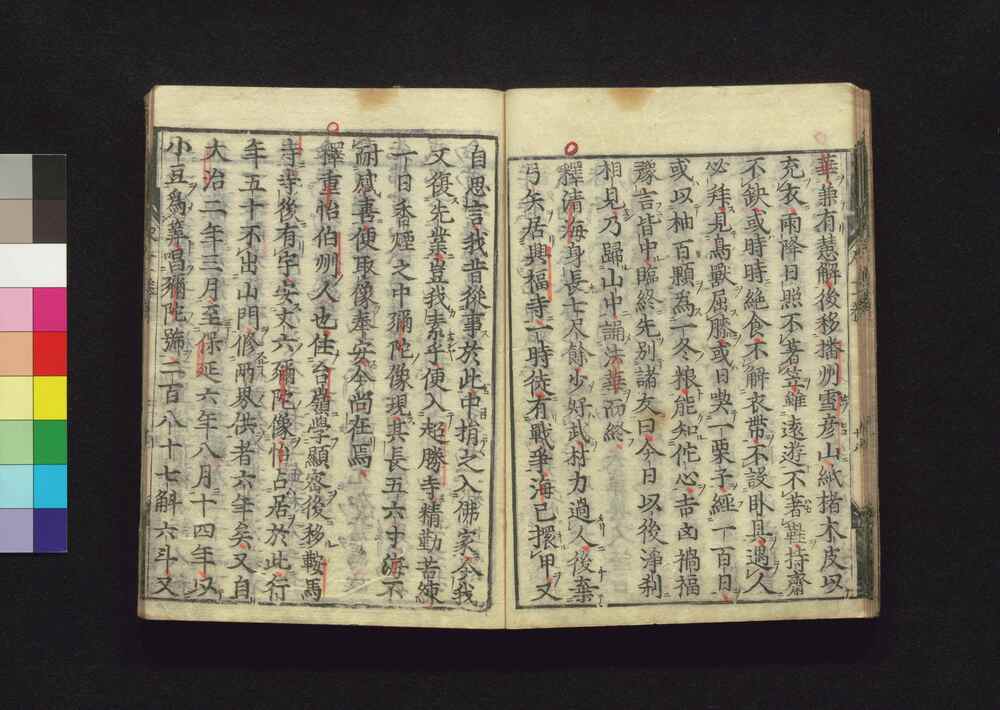 華兼有慧解後移播州雪彦山紙楮木皮以
充衣雨降日照不著笠雖遠遊不著鞋持齋
不缺或時時絶食不解衣帶不設臥具遇人
必拜見鳥獸屈膝或日喫一栗子經一百日
或以柚百顆為一冬粮能知佗心吉凶禍福
豫言皆中臨終先別諸友曰今日以後淨刹
相見乃歸山中誦法華而終
釋清海身長七尺餘少好武材力過人後棄
弓矢居興福寺一時徒有戰爭海已擐甲又
自思言我昔從事於此中捐之入佛家今我
又復先業豈我素乎便入超勝寺精勤苦練
一日香煙之中彌陀像現其長五六寸海不
耐感喜便取像奉安今尚在焉
釋重怡伯州人也住台嶺學顯密後移鞍馬
寺寺後有宇安丈六彌陀像怡占居於此行
年五十不出山門修兩界供者六年矣又自
大治二年三月至保延六年八月十四年以
小豆為籌唱彌陀號二百八十七斛六斗又